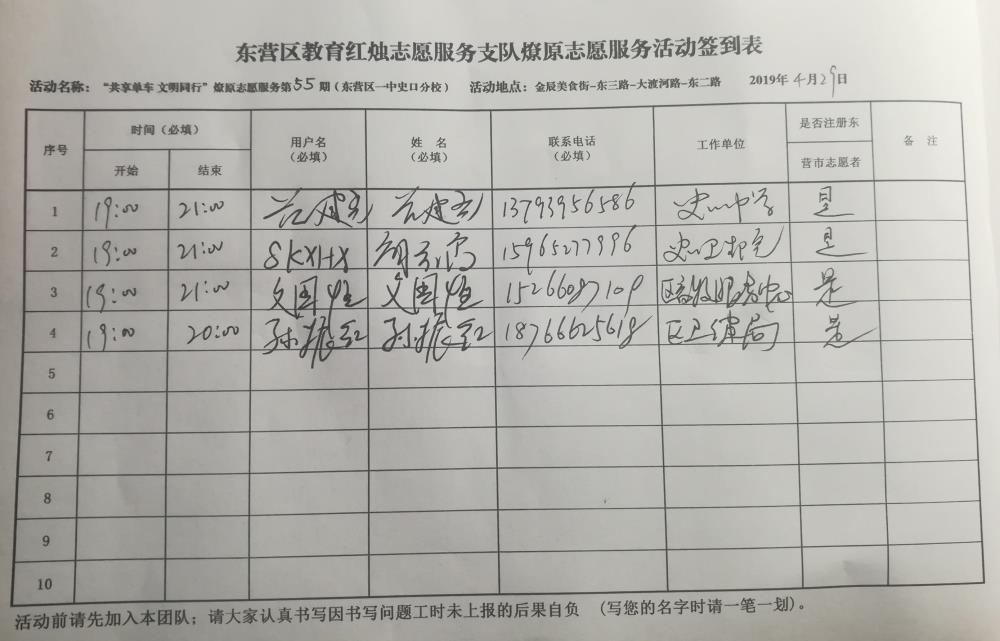 东营区教育红烛志愿服务支队燎原志愿服务活动签到表
活动名称：“共享单车 文明同行”燎原志愿服务第55期（东营区一中史口分校） 活动地点：金辰美食街-东三路-大渡河路-东二路 2019年4月29日
序号 时间（必填） 开始 结束 用户名（必填） 姓 名（必填） 联系电话（必填） 工作单位 是否注册东营市志愿者 备 注
1 19:00 21:00 13793956586 是
2 19:00 21:00 SKXHX 15965277996 是
3 19:00 21:00 15266087109 是
4 19:00 20:00 孙振红 孙振红 18766625618 区卫健局 是
5
6
7
8
9
10
活动前请先加入本团队；请大家认真书写因书写问题工时未上报的后果自负 （写您的名字时请一笔一划）。